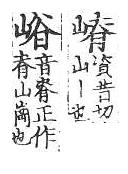 嵴
資昔切
山丨也
峪
音脊正作
脊山崗也